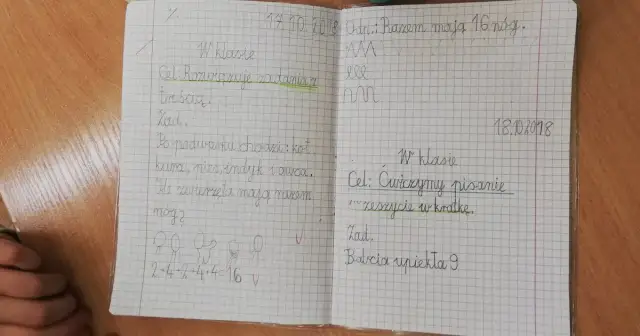 17.10.2018
W klasie
Cel: Rozwiązuję zadania z
treścią.
Zad.
Po podwórku chodzi: kot,
kura, pies, indyk i owca.
Ile zwierzęta mają razem
nóg?
16
Odp.: Razem mają 16 nóg.
18.10.2018
W klasie
Cel: Ćwiczymy pisanie
w zeszycie w kratkę.
Zad.
Babcia upiekła 9